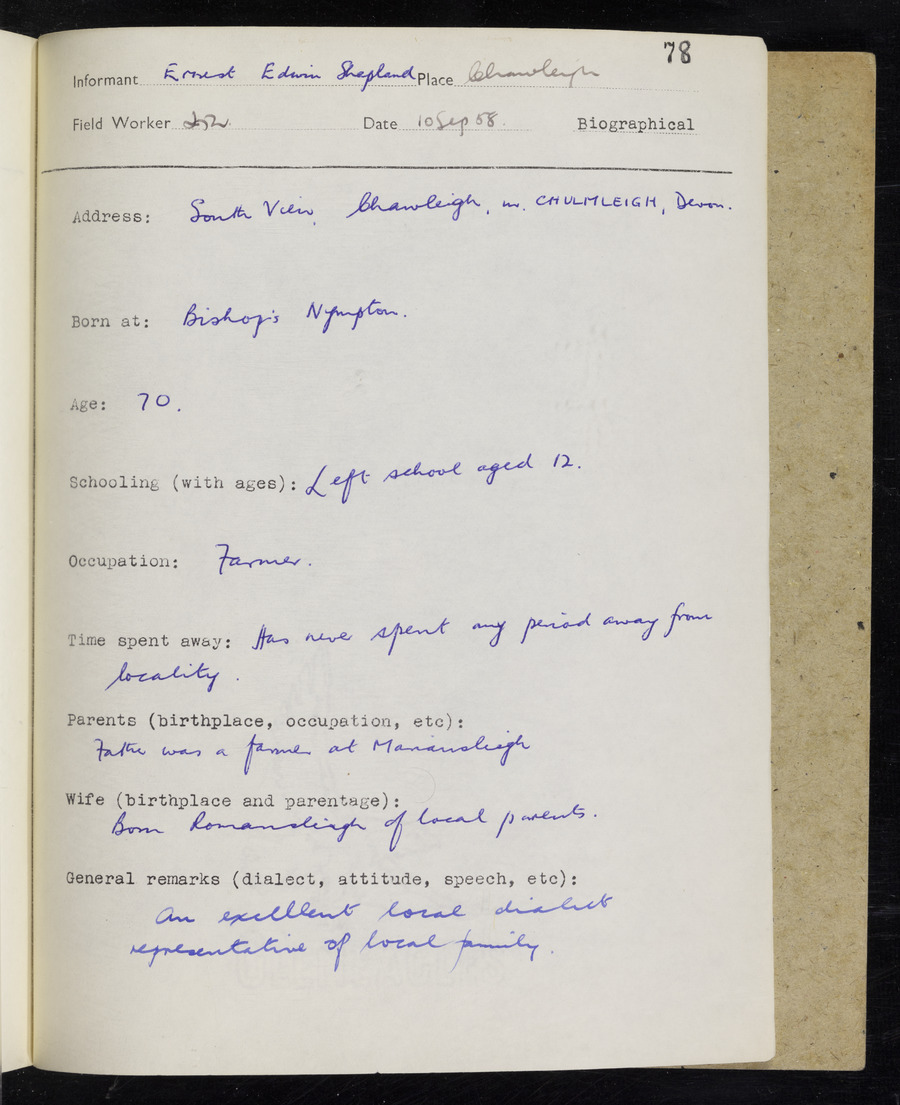 78
Informant Ernest Edwin Shepland Place Chawleigh
Field Worker
Date 10 Sep 58. Biographical
Address: South View, Chawleigh, nr. CHULMLEIGH, Devon.
Born at: Bishop's Nympton.
Age: 70.
Schooling (with ages): Left school aged 12.
Occupation: Farmer.
Time spent away: Has never spent any period away from
locality.
Parents (birthplace, occupation, etc):
Father was a farmer at Mariansleigh
Wife (birthplace and parentage):
Born Romansleigh of local parents.
General remarks (dialect, attitude, speech, etc):
An excelllent local dialect
representative of local family.